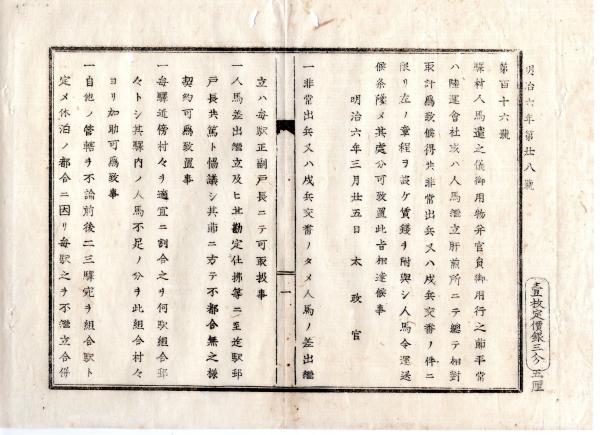 明治六年第廿八號
壹枚定價銀三分五厘
第百十六號
驛村人馬遣之儀御用物并官員御用行之節平常
ハ陸運會社或ハ人馬繼立肝煎所ニテ總テ相對
取計爲致候得共非常出兵又ハ戍兵交番ノ件ニ
限リ左ノ章程ヲ設ケ賃錢ヲ附與シ人馬令運送
候條隆メ其處分可致置此旨相達候事
明治六年三月廿五日 太政官
一非常出兵又ハ戍兵交番ノタメ人馬ノ差出繼
立ハ每驛正副戶長ニテ可取扱事
一人馬差出繼立及ヒ其勘定仕拂等ニ至迄驛郵
戶長共篤ト協議シ其節ニ方テ不都合無之樣
契約可爲致置事
一每驛近傍村々ヲ適宜ニ割合之ヲ何驛組合郵
々トシ其驛內ノ人馬不足ノ分ヲ此組合村々
ヨリ加助可爲致事
一自他ノ管轄ヲ不論前後二三驛宛ヲ組合驛ト
定メ休泊ノ都合ニ因リ每驛之ヲ不繼立合併
一